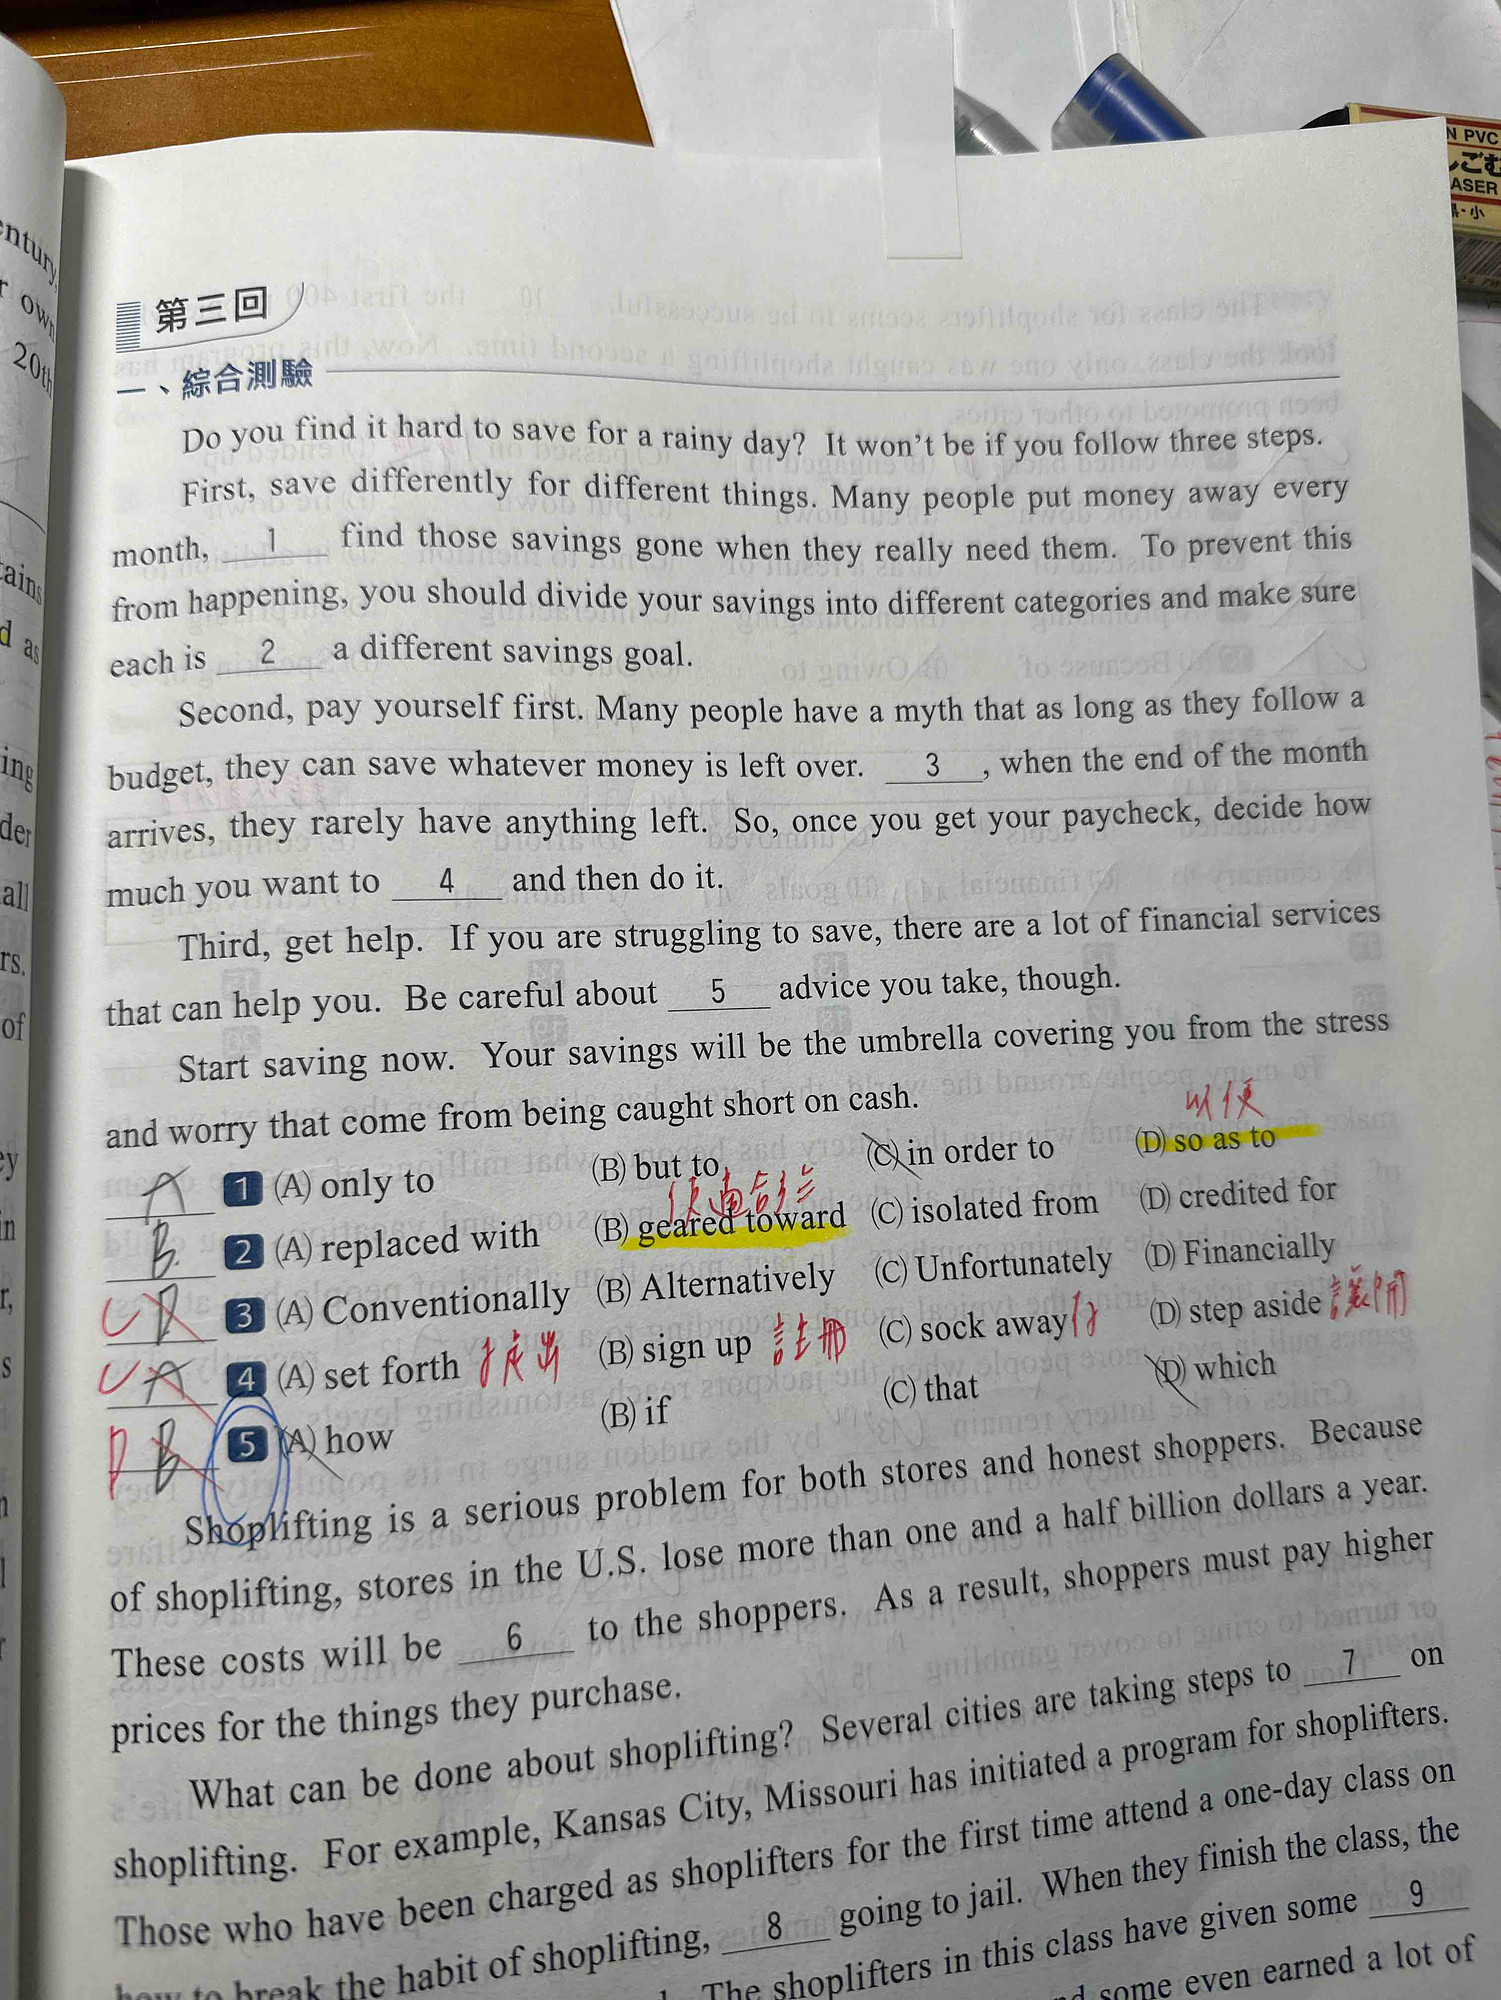 entury,
r own
20th
tains
d as
ing
der
all
rs.
of
ey
in
r,
s
N PVC
しごむ
ASER
小
第三回
一、綜合測驗
Do you find it hard to save for a rainy day? It won't be if you follow three steps.
First, save differently for different things. Many people put money away every
month, 1 find those savings gone when they really need them. To prevent this
from happening, you should divide your savings into different categories and make sure
each is 2 a different savings goal.
Second, pay yourself first. Many people have a myth that as long as they follow a
budget, they can save whatever money is left over. 3 , when the end of the month
arrives, they rarely have anything left. So, once you get your paycheck, decide how
much you want to 4 and then do it.
Third, get help. If you are struggling to save, there are a lot of financial services
that can help you. Be careful about 5 advice you take, though.
Start saving now. Your savings will be the umbrella covering you from the stress
and worry that come from being caught short on cash.
以便
A 1 (A) only to (B) but to (C) in order to (D) so as to
使適合於
B. 2 (A) replaced with (B) geared toward (C) isolated from (D) credited for
C 3 (A) Conventionally (B) Alternatively (C) Unfortunately (D) Financially
C A 4 (A) set forth 提出 (B) sign up 註冊 (C) sock away (D) step aside 讓開
D B 5 (A) how (B) if (C) that (D) which
Shoplifting is a serious problem for both stores and honest shoppers. Because
of shoplifting, stores in the U.S. lose more than one and a half billion dollars a year.
These costs will be 6 to the shoppers. As a result, shoppers must pay higher
prices for the things they purchase.
What can be done about shoplifting? Several cities are taking steps to 7 on
shoplifting. For example, Kansas City, Missouri has initiated a program for shoplifters.
Those who have been charged as shoplifters for the first time attend a one-day class on
how to break the habit of shoplifting, 8 going to jail. When they finish the class, the
The shoplifters in this class have given some 9
some even earned a lot of